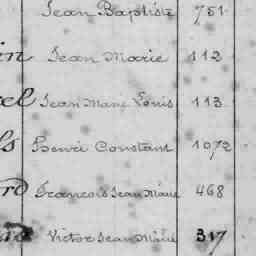 Jean Baptiste 751
in Jean Marie 112
el Jean Marie Louis 113
ls Henri Constant 1072
rd François Jean Marie 468
Victor Jean Marie 317